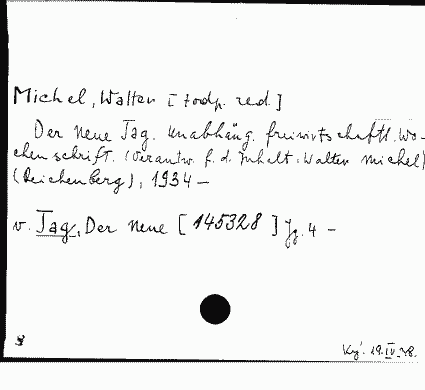 Michel, Walter [zodp. red.]
Der neue Tag. Unabhäng. freiwirtschaftl. Wo-
chenschrift. (Verantw. f. d. Inhalt: Walter Michel)
(Reichenberg), 1934 —
v. Tag, Der neue [145328] Jg. 4 —
19.IV.48.